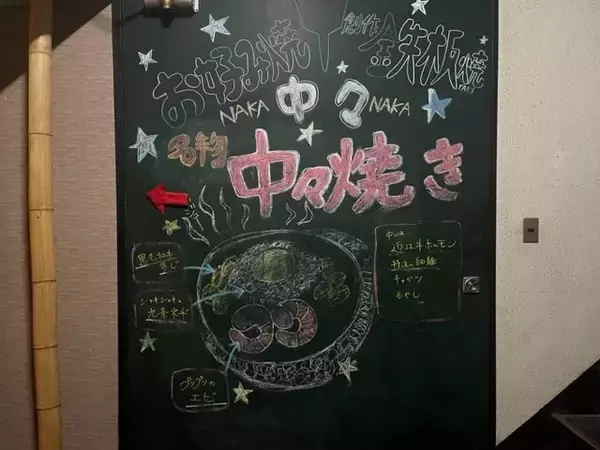 お好み焼
創作
鉄板焼
NAKA 中々 NAKA
名物
中々焼き
黒毛和牛
すじ
シャキシャキの
九条ネギ
プリプリの
エビ
中には
近江牛ホルモン
特注の細麺
キャベツ
もやし